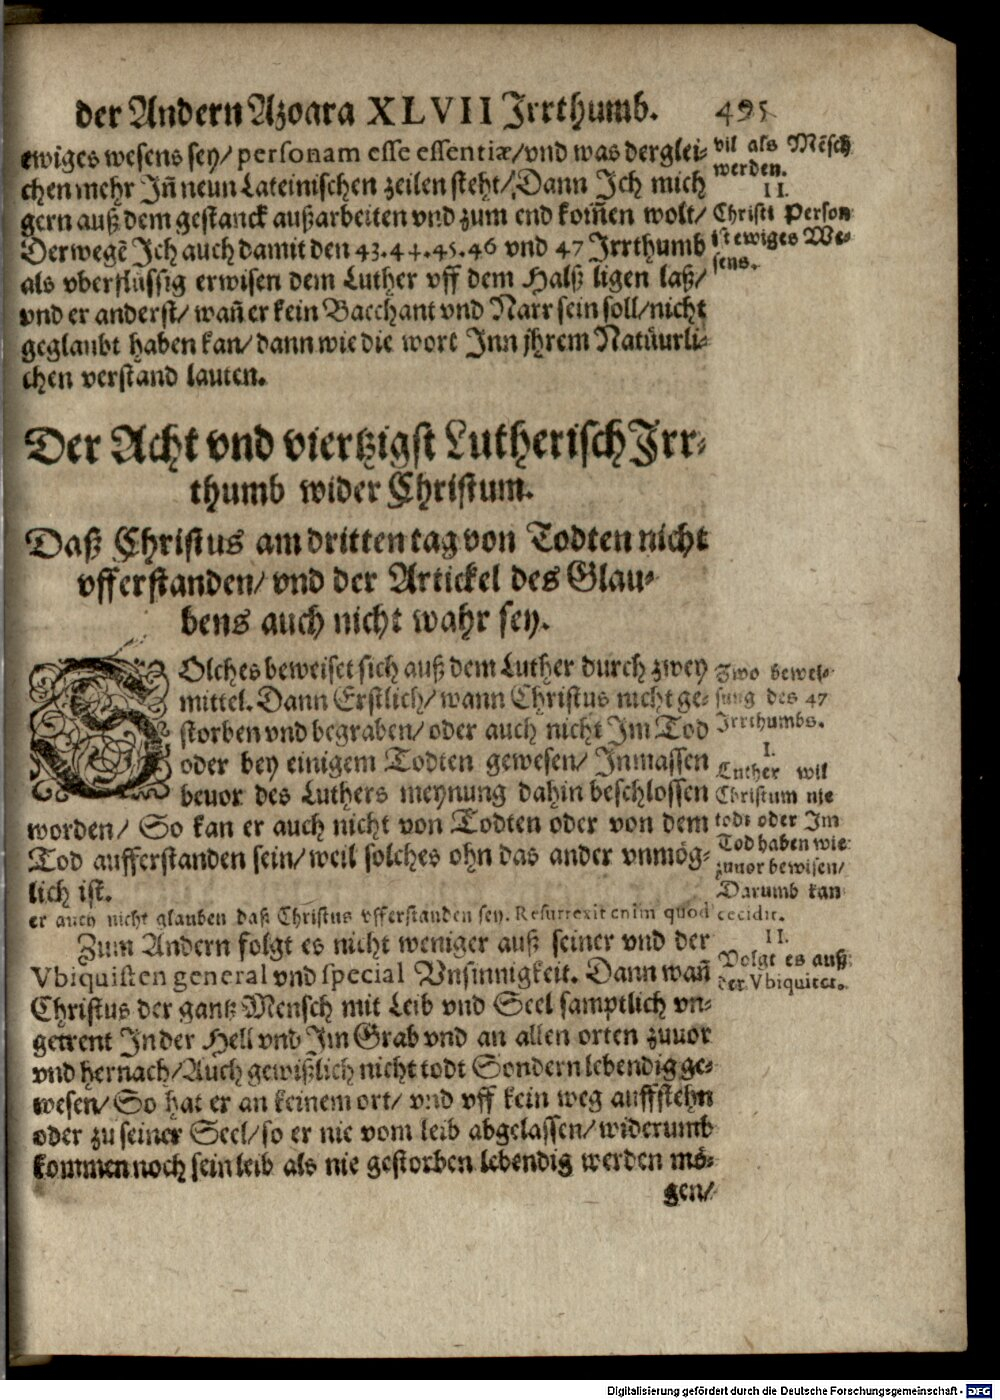 der Andern Azoara XLVII Irrthumb. 495
ewiges wesens sey/ personam esse essentiæ/ vnd was derglei-
chen mehr Jn̄ neun Lateinischen zeilen steht/ Dann Jch mich
gern auß dem gestanck außarbeiten vnd zum end kom̄en wolt/
Derwegē Jch auch damit den 43. 44. 45. 46 vnd 47 Irrthumb
als vberflüssig erwisen dem Luther vff dem Halß ligen laß/
vnd er anderst/ wan̄ er kein Bacchant vnd Narr sein soll/ nicht
geglaubt haben kan/ dann wie die wort Jnn jhrem Natüurli-
chen verstand lauten.
vil als Mēsch
werden.
II.
Christi Person
ist ewiges We-
sens.
Der Acht vnd viertzigst Lutherisch Irr-
thumb wider Christum.
Daß Christus am dritten tag von Todten nicht
vfferstanden/ vnd der Artickel des Glau-
bens auch nicht wahr sey.
SOlches beweiset sich auß dem Luther durch zwey
mittel. Dann Erstlich/ wann Christus nicht ge-
storben vnd begraben/ oder auch nicht Jm Tod
oder bey einigem Todten gewesen/ Jnmassen
beuor des Luthers meynung dahin beschlossen
worden/ So kan er auch nicht von Todten oder von dem
Tod aufferstanden sein/ weil solches ohn das ander vnmög-
lich ist.
Zwo bewei-
sung des 47
Irrthumbs.
I.
Luther wil
Christum nie
todt oder Jm
Tod haben wie
zuuor bewisen/
Darumb kan
er auch nicht glauben daß Christus vfferstanden sey. Resurrexit enim quod cecidit.
Zum Andern folgt es nicht weniger auß seiner vnd der
Vbiquisten general vnd special Vnsinnigkeit. Dann wan̄
Christus der gantz Mensch mit Leib vnd Seel samptlich vn-
getrent Jn der Hell vnd Jm Grab vnd an allen orten zuuor
vnd hernach/ Auch gewißlich nicht todt Sondern lebendig ge-
wesen/ So hat er an keinem ort/ vnd vff kein weg auffstehn
oder zu seiner Seel/ so er nie vom leib abgelassen/ widerumb
kommen noch sein leib als nie gestorben lebendig werden mö-
gen/
II.
Volgt es auß
der Vbiquitet.
Digitalisierung gefördert durch die Deutsche Forschungsgemeinschaft - DFG